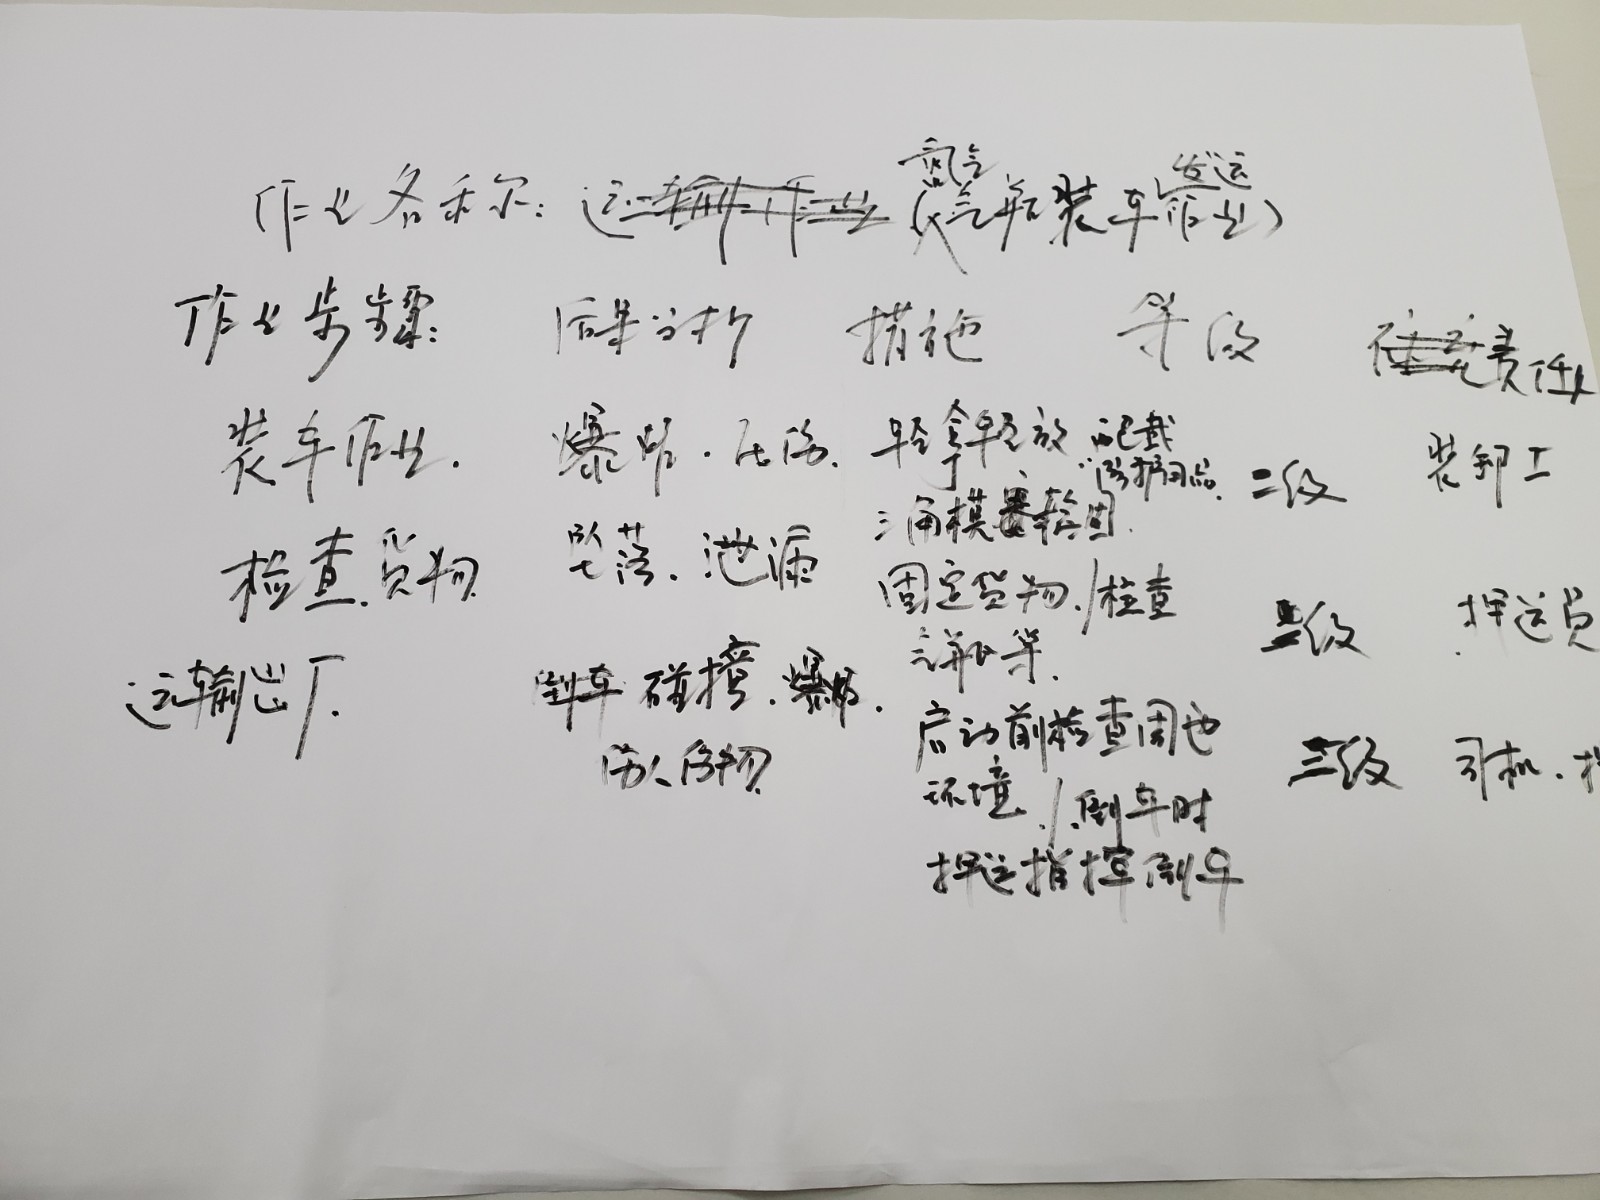 作业名称：运输作业（氮气气瓶装车发运作业）
作业步骤：　后果分析　措施　等级　责任
装车作业．　爆炸．压伤．　轻拿轻放　配戴防护用品．　二级　装卸工
三角模
检查货物　坠落．泄漏　固定货物．/检查　级　押送员
运输出厂．　倒车碰撞．爆炸．　启动前检查周边　三级　司机．
伤人伤物　环境．/倒车时
押运指挥倒车